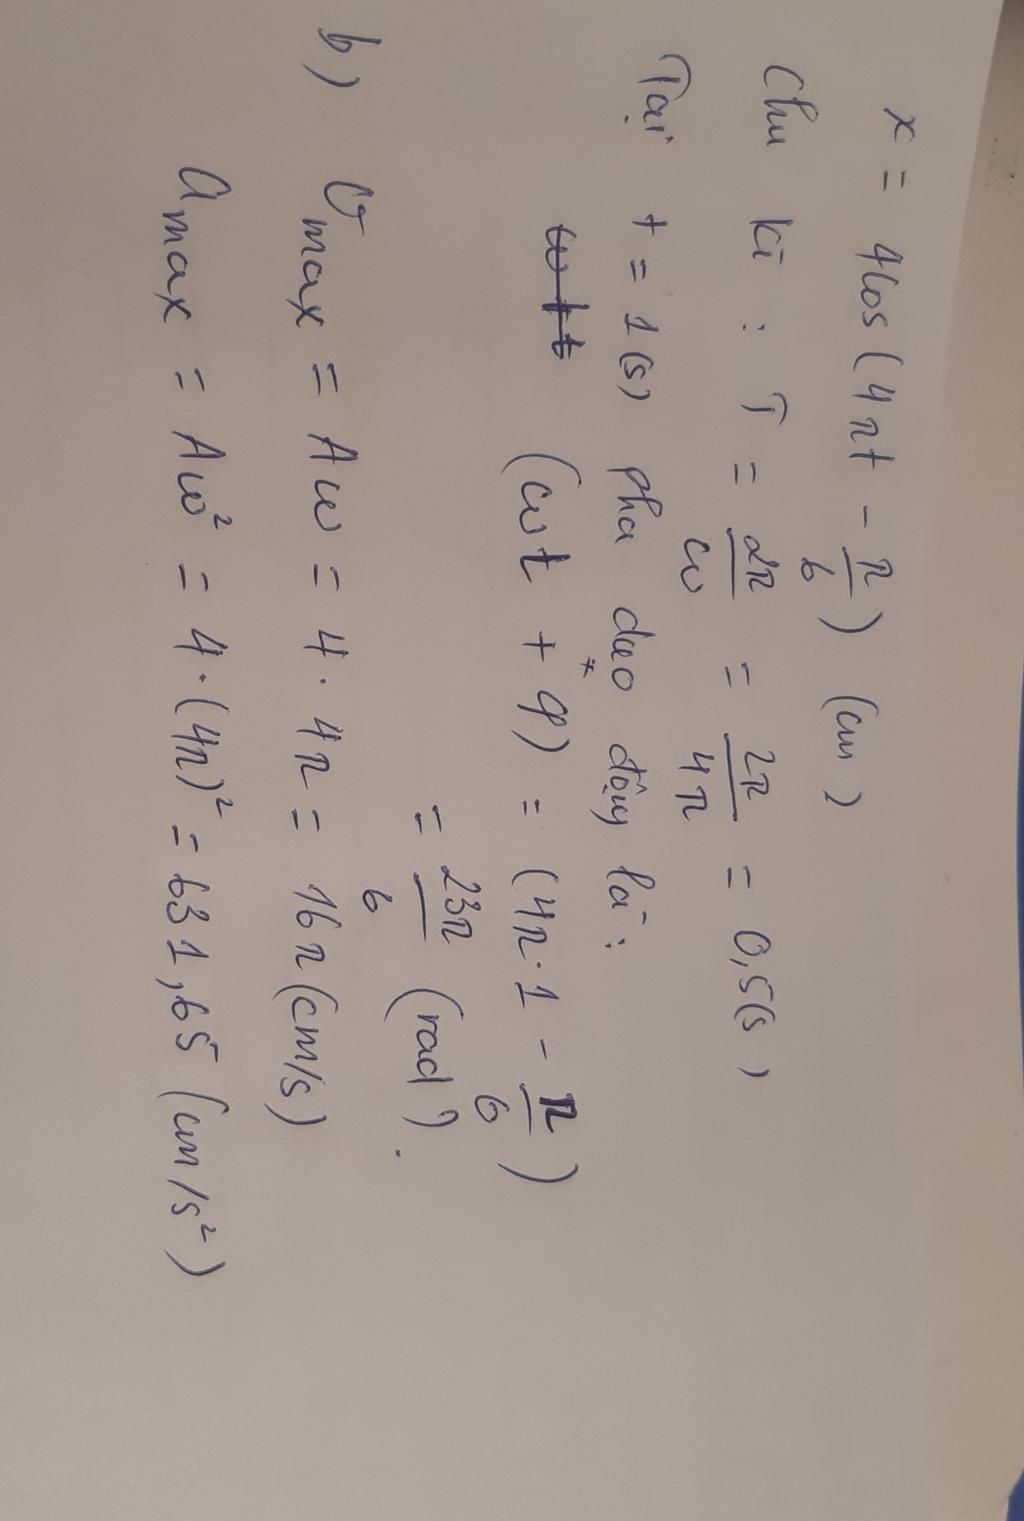 x = 4cos(4πt - π/6) (cm)
Chu kì : T = 2π/ω = 2π/4π = 0,5(s)
Tại t = 1(s) pha dao động là :
(ωt + φ) = (4π.1 - π/6)
= 23π/6 (rad).
b) vmax = Aω = 4. 4π = 16π(cm/s)
amax = Aω² = 4.(4π)² = 631,65 (cm/s²)